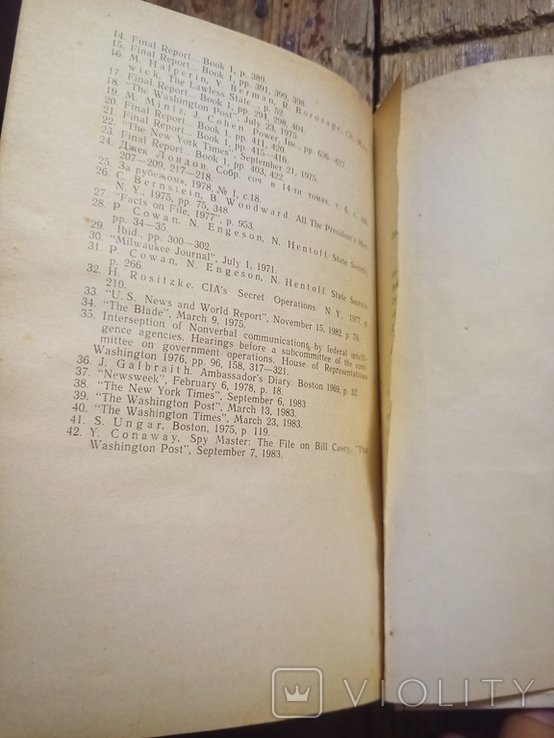 14. Final Report... Book 1, p. 389.
15. Final Report... Book 1, pp. 391, 399, 398.
16. M. Halperin, Y. Berman, R. Borosage, Ch. Mar-
wick, The Lawless State... p. 52.
17. Final Report... Book 1, pp. 291, 298, 404.
18. "The Washington Post", July 23, 1975.
19. M. Mintz, J. Cohen. Power, Inc., pp. 626—627.
20. Final Report, Book 1, pp. 411, 420
21. Final Report, Book 1, pp. 415—416.
22. "The New York Times", September 21, 1975.
23. Final Report, Book 1, pp. 403, 422.
24. Джек Лондон. Собр. соч в 14-ти томах, т. 6, с.
207—209, 217—218.
25. „За рубежом», 1978, № 1, с.18.
26. C. Bernstein, B. Woodward. All The President's Men.
N. Y., 1975, pp. 75, 348.
27. "Facts on File, 1977", p. 953.
28. P. Cowan, N. Engeson, N. Hentoff. State Secrets,
pp. 34—35.
29. Ibid., pp. 300—302.
30. "Milwaukee Journal", July 1, 1971.
31. P. Cowan, N. Engeson, N. Hentoff. State Secrets,
p. 266
32. H. Rositzke. CIA's Secret Operations N. Y. 1977, p.
210.
33. "U. S. News and World Report", November 15, 1982, p. 70.
34. "The Blade", March 9, 1975.
35. Interseption of Nonverbal communications by federal intelli-
gence agencies. Hearings before a subcommittee of the com-
mittee on government operations. House of Representatives
Washington 1976, pp. 96, 158, 317—321.
36. J. Galbraith. Ambassador's Diary. Boston 1969, p. 32.
37. "Newsweek", February 6, 1978, p. 18.
38. "The New York Times", September 6, 1983
39. "The Washington Post", March 13, 1983.
40. "The Washington Times", March 23, 1983.
41. S. Ungar. Boston, 1975, p 119.
42. Y. Conaway, Spy Master: The File on Bill Casey, "The
Washington Post", September 7, 1983.
VIOLITY